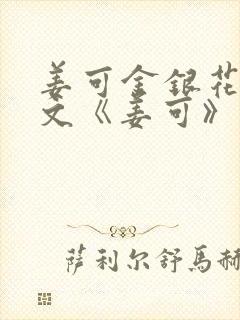 姜可金银花
文《姜可》
萨利尔舒馬赫